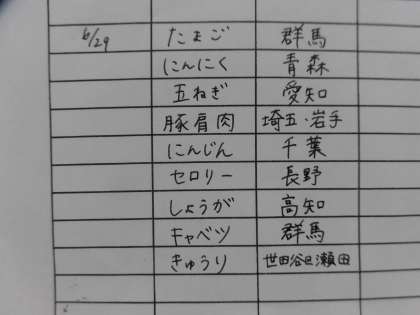 6/29 たまご 群馬
にんにく 青森
五ねぎ 愛知
豚肩肉 埼五・岩手
にんじん 千葉
セロリー 長野
しょうが 高知
キャベツ 群馬
きゅうり 世田谷区瀬田